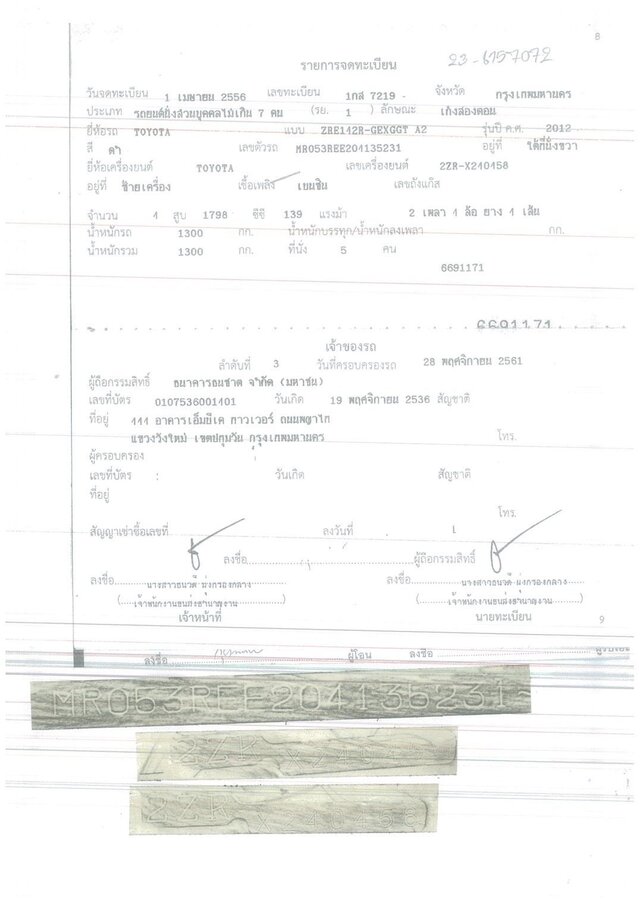 8
รายการจดทะเบียน 23-6157072
วันจดทะเบียน 1 เมษายน 2556 เลขทะเบียน 1กส 7219 - จังหวัด กรุงเทพมหานคร
ประเภท รถยนต์นั่งส่วนบุคคลไม่เกิน 7 คน (รย. 1 ) ลักษณะ เก๋งสองตอน
ยี่ห้อรถ TOYOTA แบบ ZRE142R-GEXGGT A2 รุ่นปี ค.ศ. 2012
สี ดำ เลขตัวรถ MR053REE204135231 อยู่ที่ ใต้ที่นั่งขวา
ยี่ห้อเครื่องยนต์ TOYOTA เลขเครื่องยนต์ 2ZR-X240458
อยู่ที่ ซ้ายเครื่อง เชื้อเพลิง เบนซิน เลขถังแก๊ส
จำนวน 4 สูบ 1798 ซีซี 139 แรงม้า 2 เพลา 4 ล้อ ยาง 4 เส้น
น้ำหนักรถ 1300 กก. น้ำหนักบรรทุก/น้ำหนักลงเพลา กก.
น้ำหนักรวม 1300 กก. ที่นั่ง 5 คน
6691171
6691171
เจ้าของรถ
ลำดับที่ 3 วันที่ครอบครองรถ 28 พฤศจิกายน 2561
ผู้ถือกรรมสิทธิ์ ธนาคารธนชาต จำกัด (มหาชน)
เลขที่บัตร 0107536001401 วันเกิด 19 พฤศจิกายน 2536 สัญชาติ
ที่อยู่ 444 อาคารเอ็มบีเค ทาวเวอร์ ถนนพญาไท
แขวงวังใหม่ เขตปทุมวัน กรุงเทพมหานคร โทร.
ผู้ครอบครอง
เลขที่บัตร : วันเกิด สัญชาติ
ที่อยู่
โทร.
สัญญาเช่าซื้อเลขที่ ลงวันที่
ลงชื่อ ผู้ถือกรรมสิทธิ์
ลงชื่อ ลงชื่อ
เจ้าพนักงานขนส่งชำนาญงาน เจ้าพนักงานขนส่งชำนาญงาน
เจ้าหน้าที่ นายทะเบียน 9
ลงชื่อ ผู้โอน ลงชื่อ
MR053REE204135231
2ZR X240458
2ZR X240458